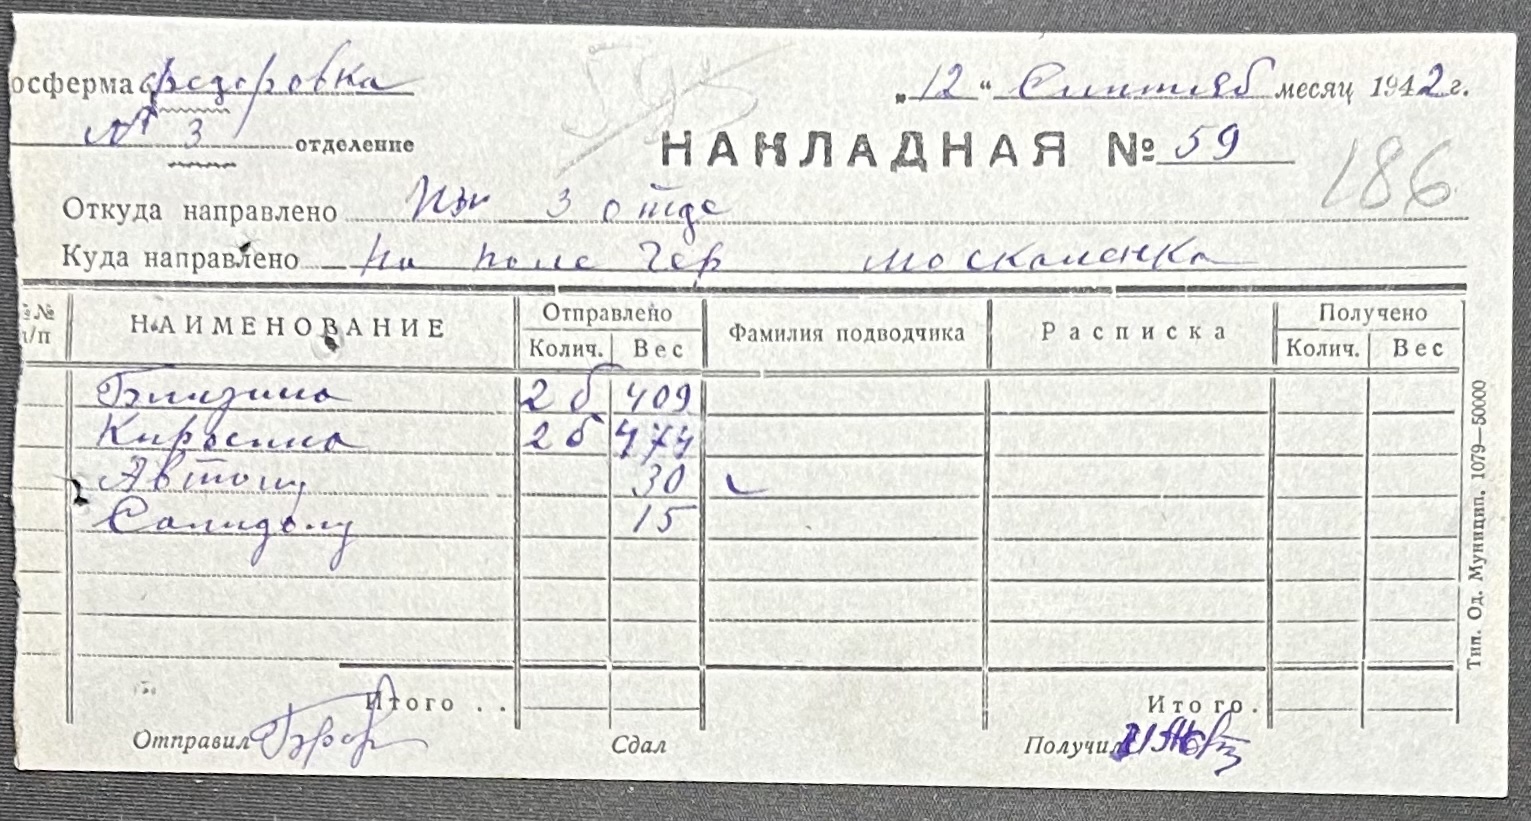 осферма Федоровка
„12“ Сиптяб месяц 1942 г.
№ 3 отделение
НАКЛАДНАЯ № 59
186
Откуда направлено Из 3 отде
Куда направлено На поле Чер москаленка
№№ п/п НАИМЕНОВАНИЕ Отправлено Колич. Вес Фамилия подводчика Расписка Получено Колич. Вес
Бинзина 2 б 409
Киросина 2 б 474
Автолу 30
Солидолу 15
Итого . . Итого .
Отправил Сдал Получил
Тип. Од. Муницип. 1079—50000